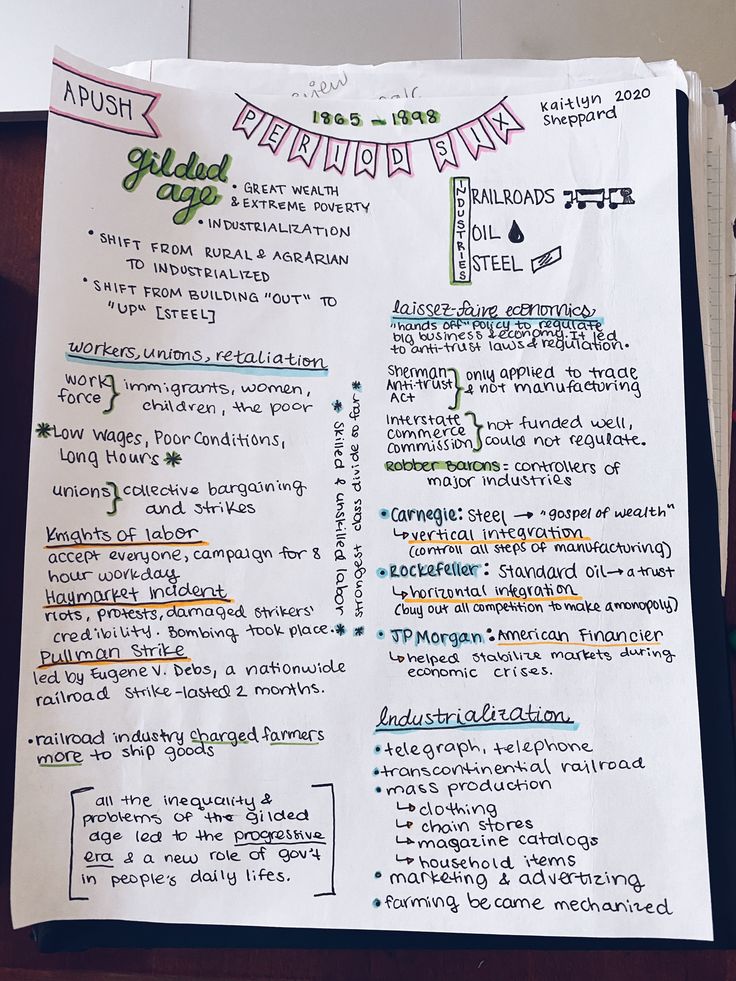 view
APUSH
1865 - 1898
PERIOD SIX
Kaitlyn 2020
Sheppard
gilded
age
• GREAT WEALTH
& EXTREME POVERTY
• INDUSTRIALIZATION
• SHIFT FROM RURAL & AGRARIAN
TO INDUSTRIALIZED
• SHIFT FROM BUILDING "OUT" TO
"UP" [STEEL]
INDUSTRIES
RAILROADS
OIL
STEEL
workers, unions, retaliation
work
force } immigrants, women,
children, the poor
*Low Wages, Poor Conditions,
Long Hours *
unions } collective bargaining
and strikes
Knights of labor
accept everyone, campaign for 8
hour workday
Haymarket Incident
riots, protests, damaged strikers'
credibility. Bombing took place.
Pullman Strike
led by Eugene V. Debs, a nationwide
railroad strike - lasted 2 months.
• railroad industry charged farmers
more to ship goods
[all the inequality &
problems of the gilded
age led to the progressive
era & a new role of gov't
in people's daily lifes.]
* skilled & unskilled labor *
* strongest class divide so far *
laissez-faire economics
"hands off" policy to regulate
big business & economy. It led
to anti-trust laws & regulation.
Sherman
Anti-trust
Act } only applied to trade
& not manufacturing
Interstate
commerce
commission } not funded well,
could not regulate.
Robber Barons = controllers of
major industries
• Carnegie: Steel → "gospel of wealth"
↳ vertical integration
(controll all steps of manufacturing)
• Rockefeller: Standard Oil → a trust
↳ horizontal integration
(buy out all competition to make a monopoly)
• JP Morgan: American Financier
↳ helped stabilize markets during
economic crises.
Industrialization
• telegraph, telephone
• transcontinental railroad
• mass production
↳ clothing
↳ chain stores
↳ magazine catalogs
↳ household items
• marketing & advertizing
• farming became mechanized